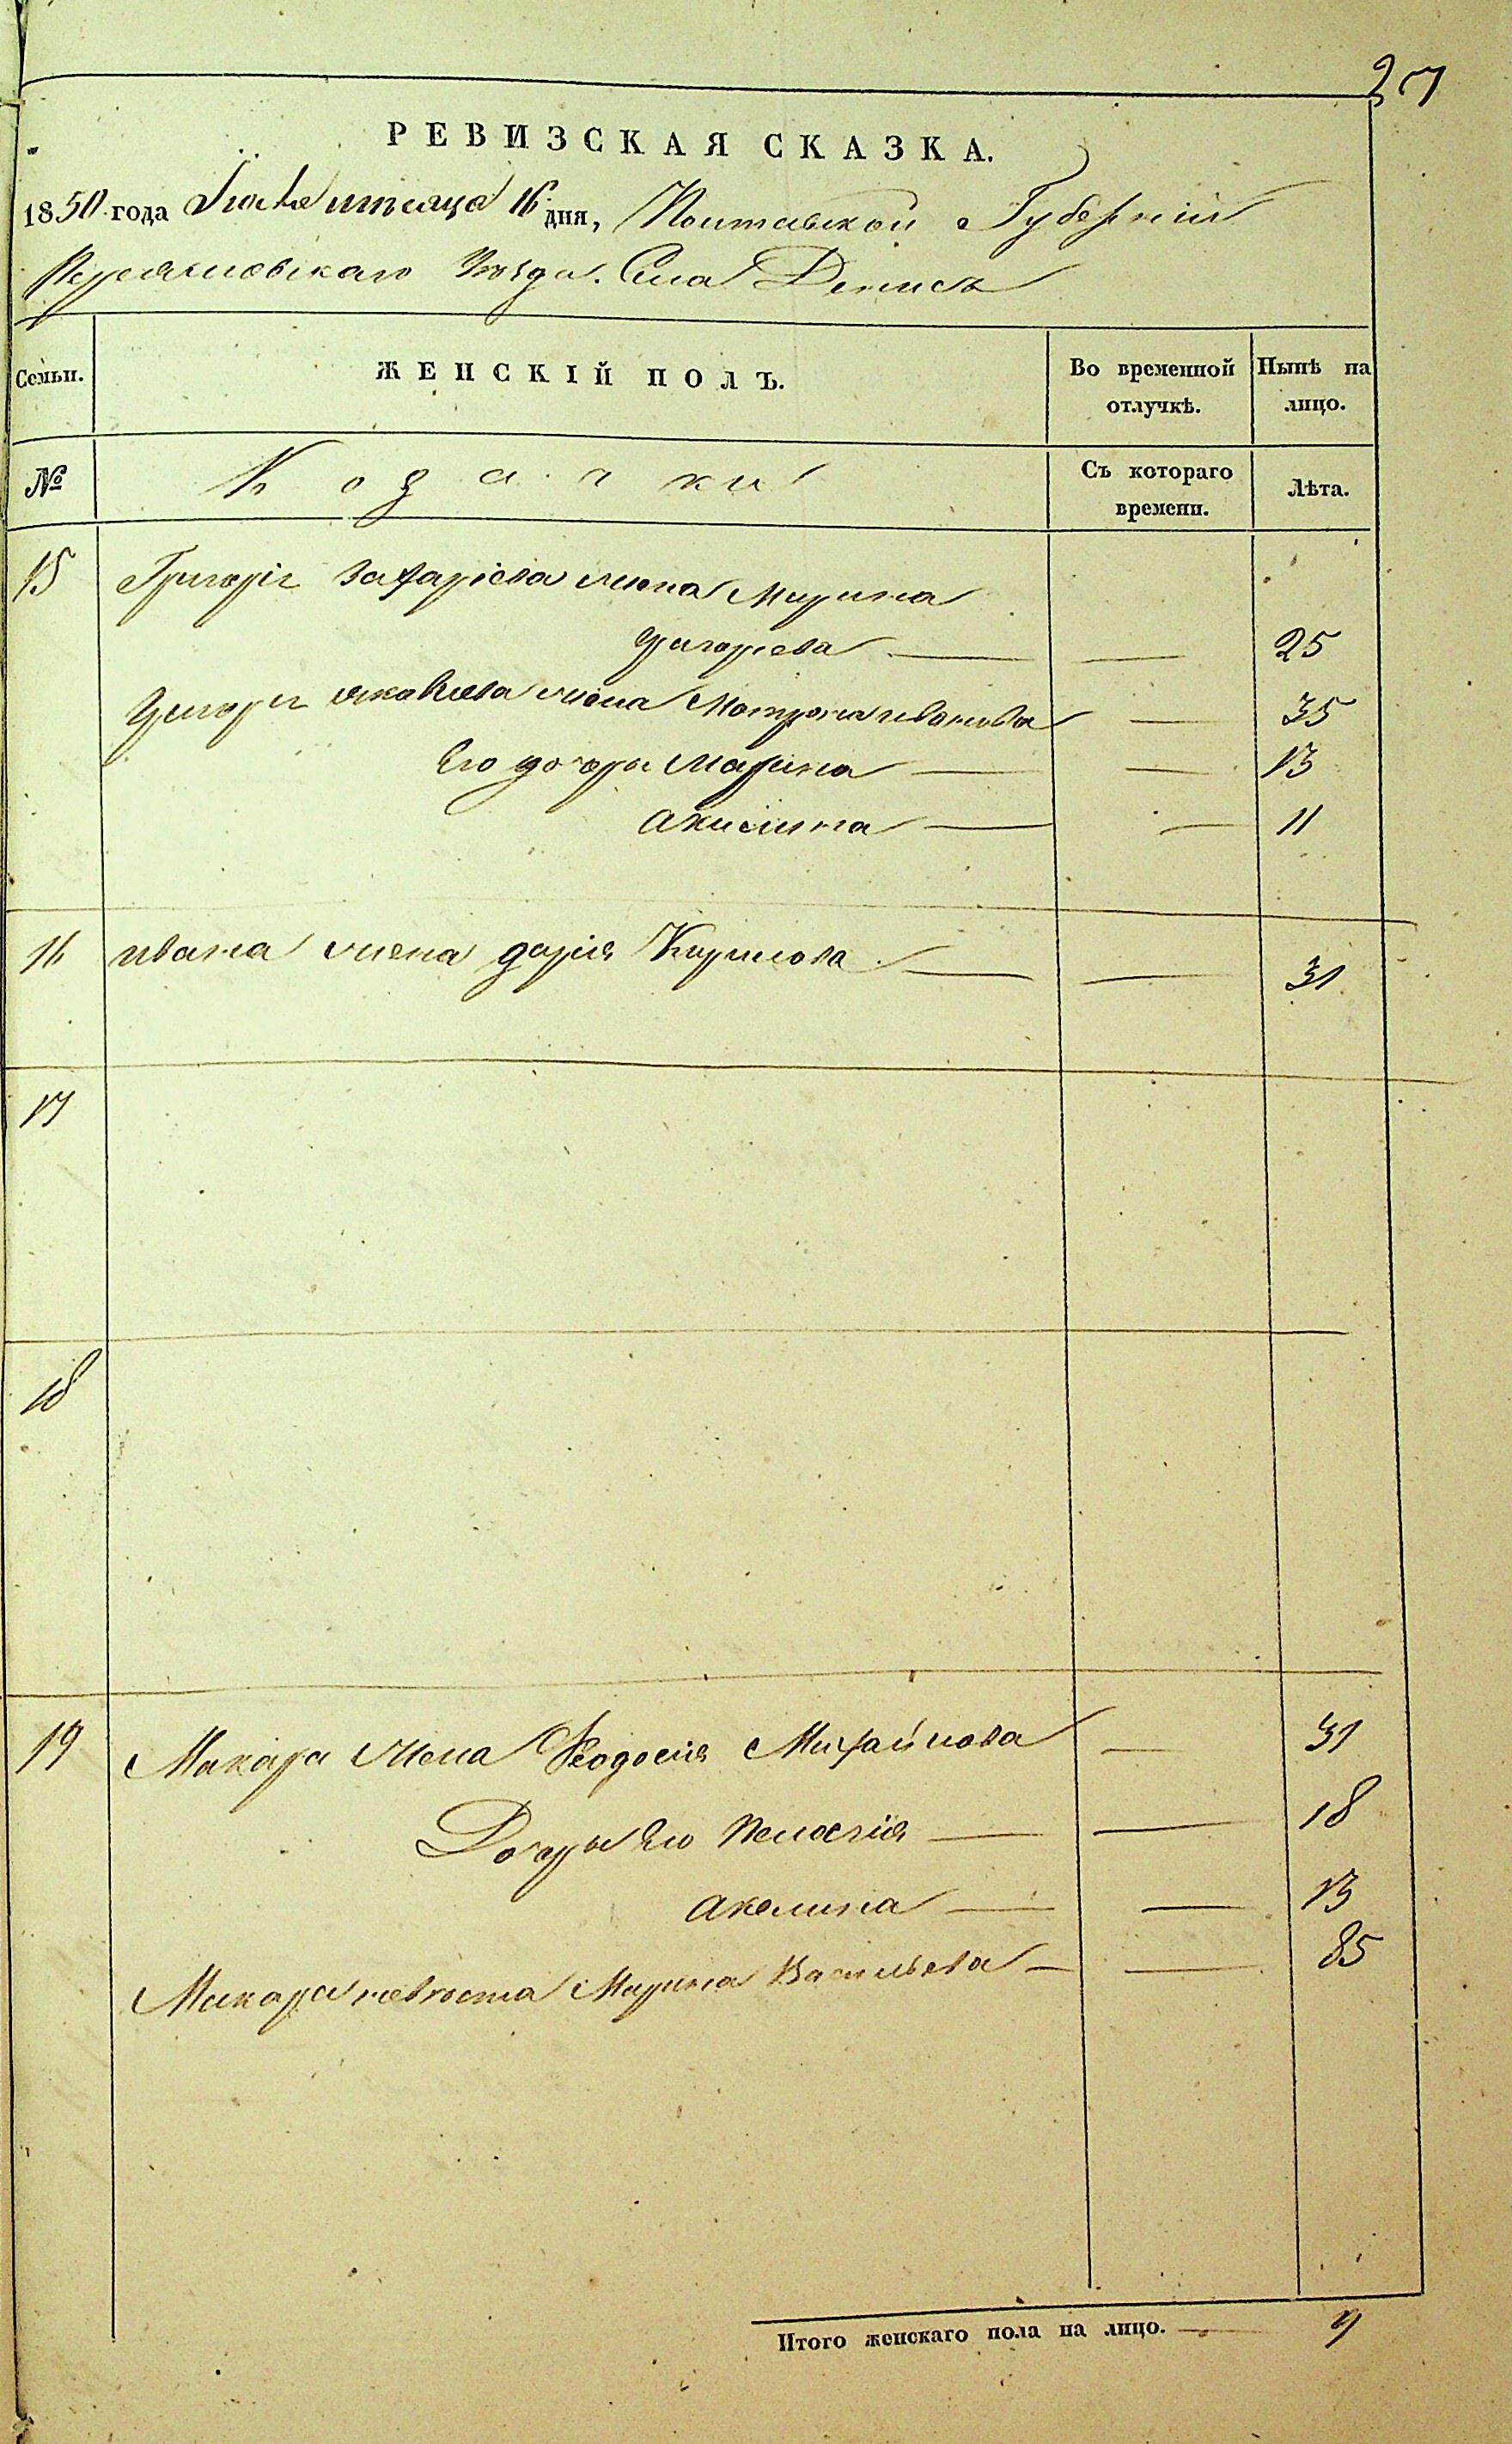 27
РЕВИЗСКАЯ СКАЗКА.
1850 года Іюля мѣсяца 16 дня, Полтавской Губерніи
Переяславскаго Уѣзда. Села Денисъ
Семьи.
ЖЕНСКІЙ ПОЛЪ.
Во временной отлучкѣ.
Нынѣ на лицо.
№
Козачки
Съ котораго времени.
Лѣта.
15 Григорія Захаріева жена Марина
Григорієва — — 25
Григорія яковлева жена Мотрона иванова — 35
Его дочери Марина — — 13
Акилина — — 11
16 ивана жена дарія Кирилова — — 31
17
18
19 Макара жена Ѳеодосія Михайлова — 31
Дочери Его Пелагія — — 18
Акелина — — 13
Макара невѣстка Марина Васильева — — 85
Итого женскаго пола на лицо. — 9